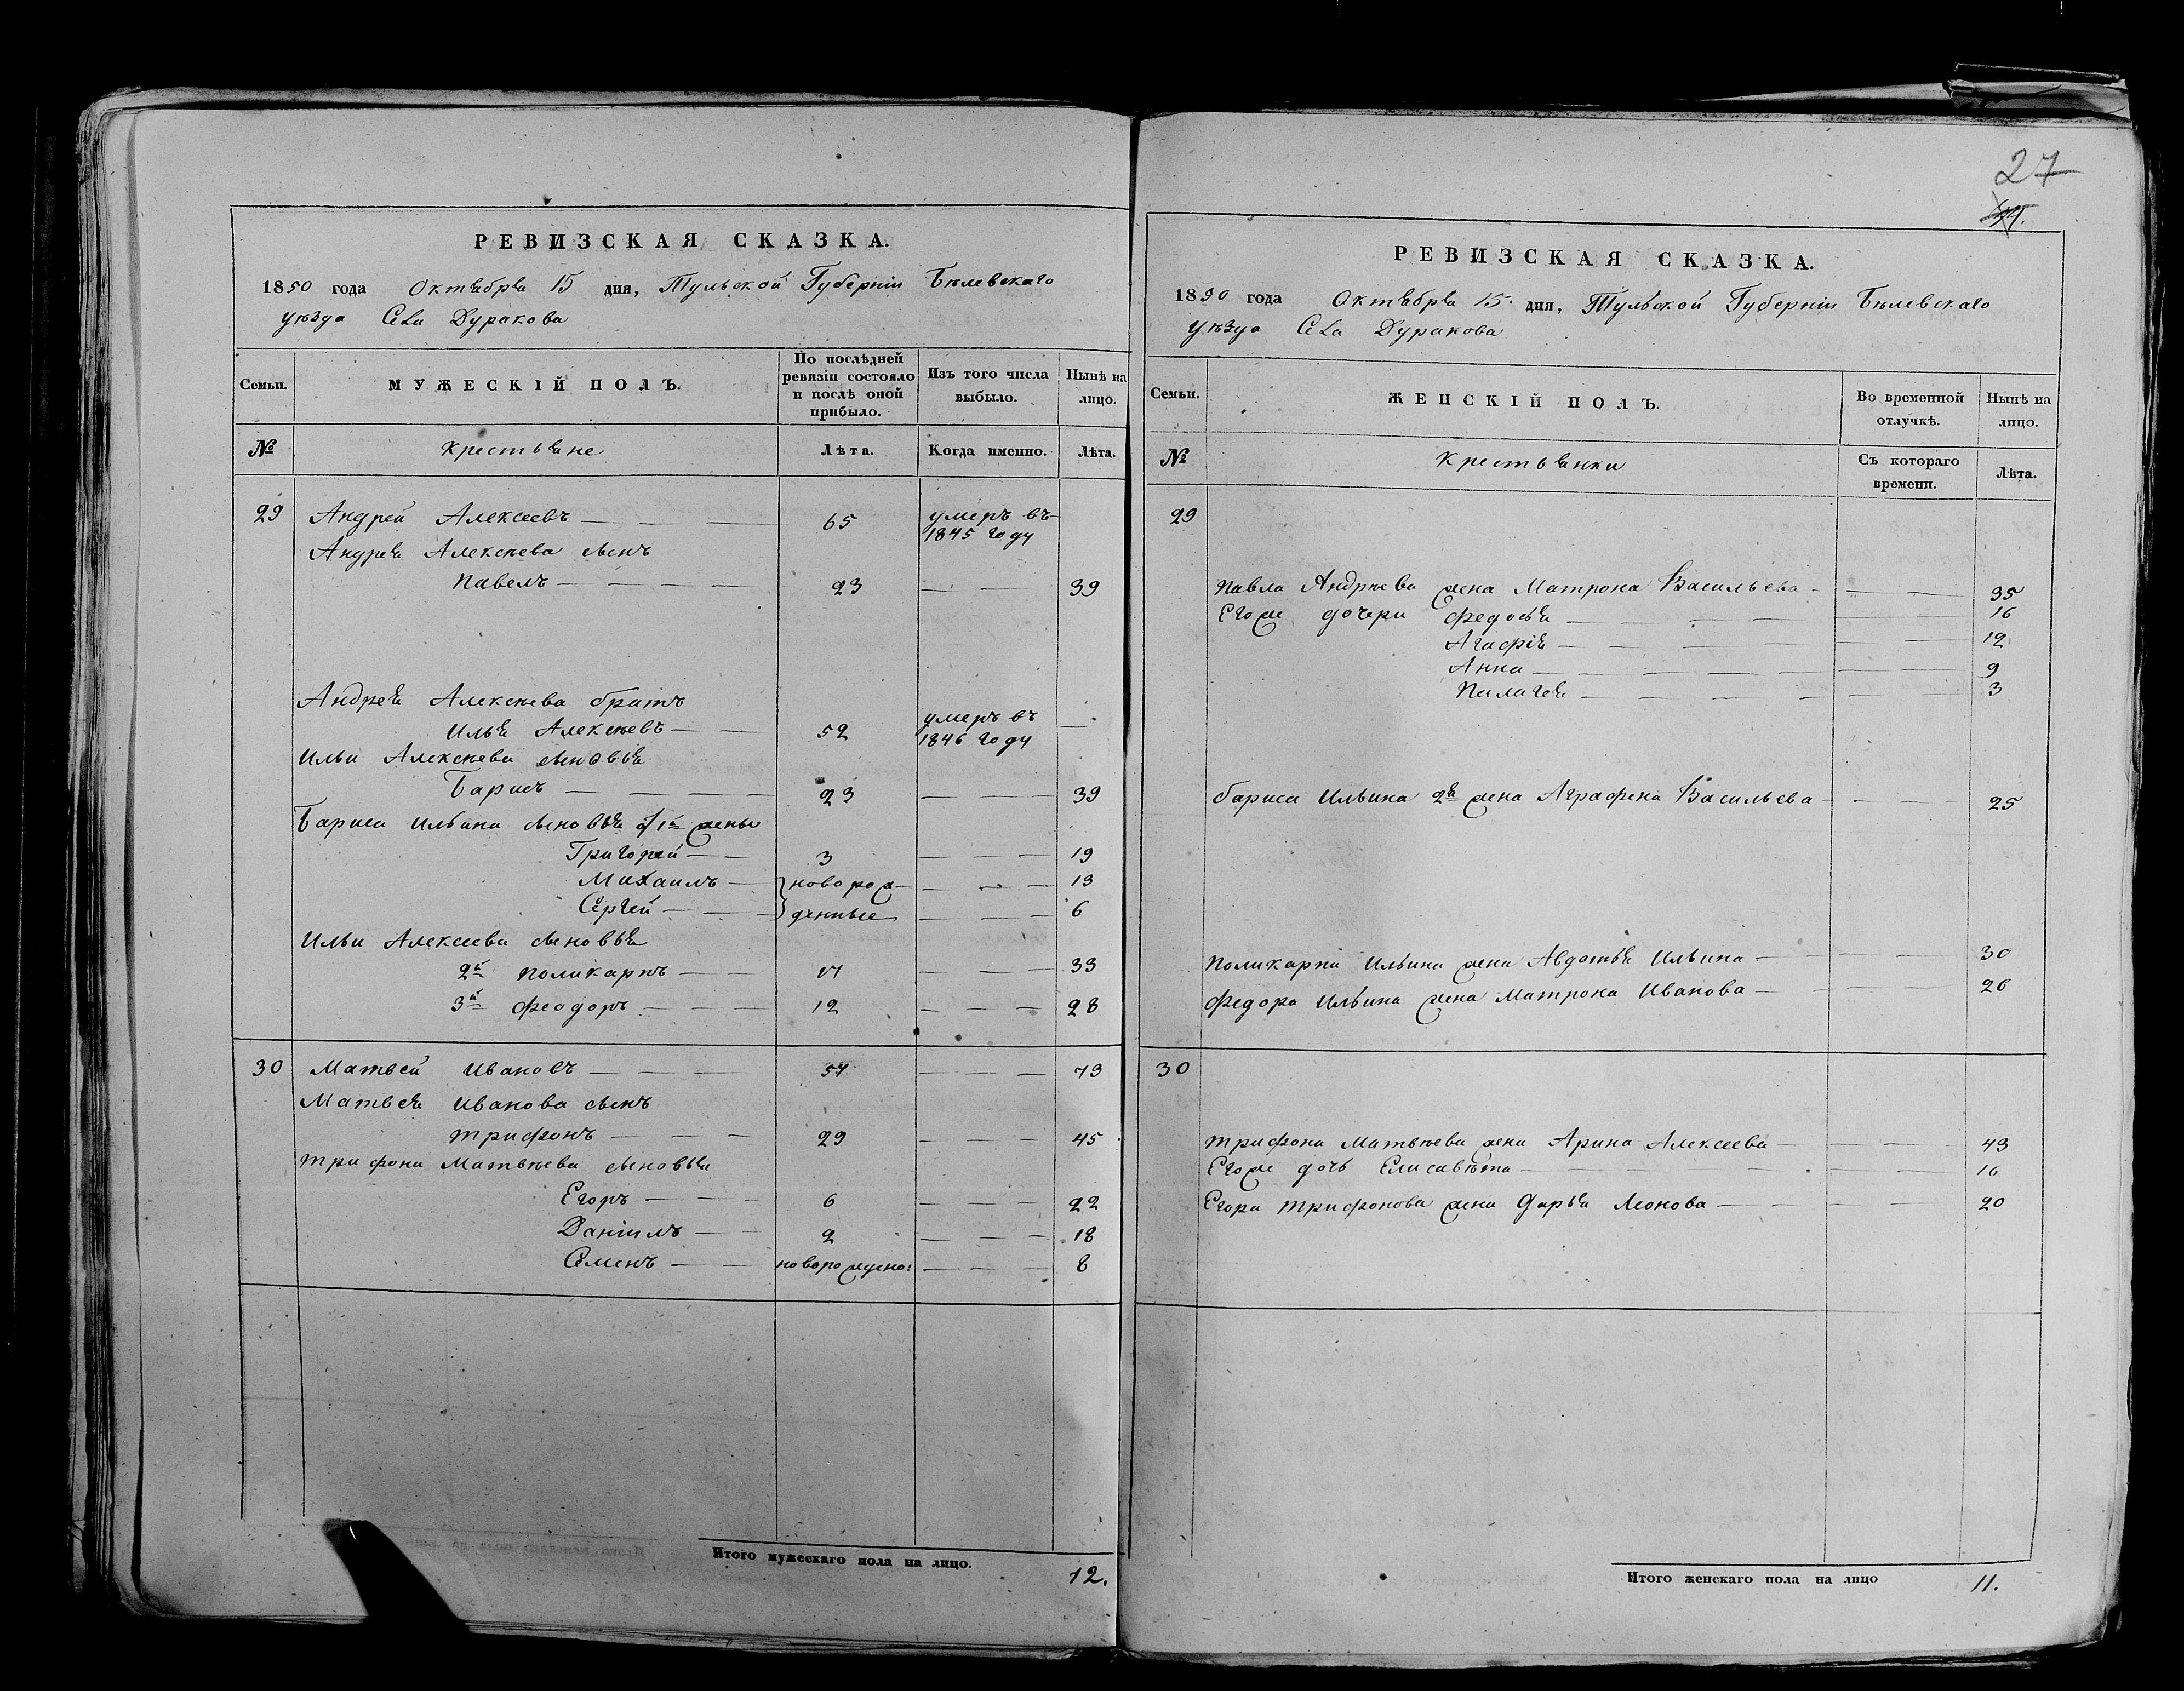 РЕВИЗСКАЯ СКАЗКА.
1850 года Октября 15 дня, Тульской Губерніи Бѣлевскаго
уѣзда Села Дуракова
Семьи.
МУЖЕСКІЙ ПОЛЪ.
По послѣдней ревизіи состояло и послѣ оной прибыло.
Изъ того числа выбыло.
Нынѣ на лицо.
№
Крестьяне
Лѣта.
Когда именно.
Лѣта.
29 Андрей Алексеевъ — — — 65 умеръ въ 1845 году
Андрея Алексѣева сынъ
Павелъ — — — — 23 — — 39
Андрея Алексѣева братъ
Илья Алексѣевъ — — 52 умеръ въ 1846 году —
Ильи Алексѣева сыновья
Барисъ — — — — 23 — — — 39
Бариса Ильина сыновья от 1й жены
Григорей — — 3 — — — 19
Михаилъ — новорож- — — — 13
Сергей — — денные — — — 6
Ильи Алексеева сыновья
2й Поликарпъ — — 17 — — 33
3й Феодоръ — — — 12 — — — 28
30 Матвей Ивановъ — — — 57 — — — 73
Матвея Иванова сынъ
Трифонъ — — — 29 — — — 45
Трифона Матвѣева сыновья
Егоръ — — — 6 — — — 22
Даніилъ — — 2 — — — 18
Семенъ — — новорождено: — — — 8
Итого мужескаго пола на лицо.
12.
27
РЕВИЗСКАЯ СКАЗКА.
1850 года Октября 15 дня, Тульской Губерніи Бѣлевскаго
уѣзда Села Дуракова
Семьи.
ЖЕНСКІЙ ПОЛЪ.
Во временной отлучкѣ.
Нынѣ на лицо.
№
Крестьянки
Съ котораго времени.
Лѣта.
29
Павла Андрѣева жена Матрона Васильева — — — 35
Егож дочери Федосья — — — — 16
Агафія — — — — 12
Анна — — — — 9
Палагея — — — — 3
Бариса Ильина 2я жена Аграфена Васильева — — — 25
Поликарпа Ильина жена Авдотья Ильина — — — 30
Федора Ильина жена Матрона Иванова — — — 26
30
Трифона Матвѣева жена Арина Алексеева — — 43
Егож дочь Елисавѣта — — — 16
Егора Трифонова жена Дарья Леонова — — — 20
Итого женскаго пола на лицо
11.